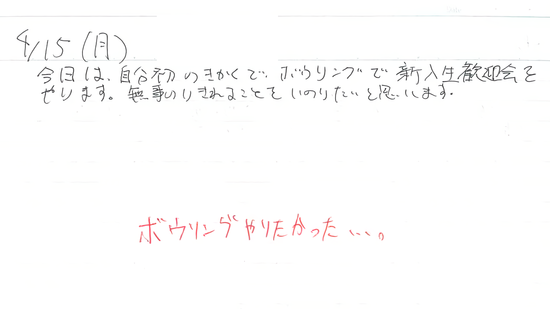 4/15(月)
今日は、自分初のきかくで、ボウリングで新入生歓迎会を
やります。無事のりきれることをいのりたいと思います。
ボウリングやりたかった...。